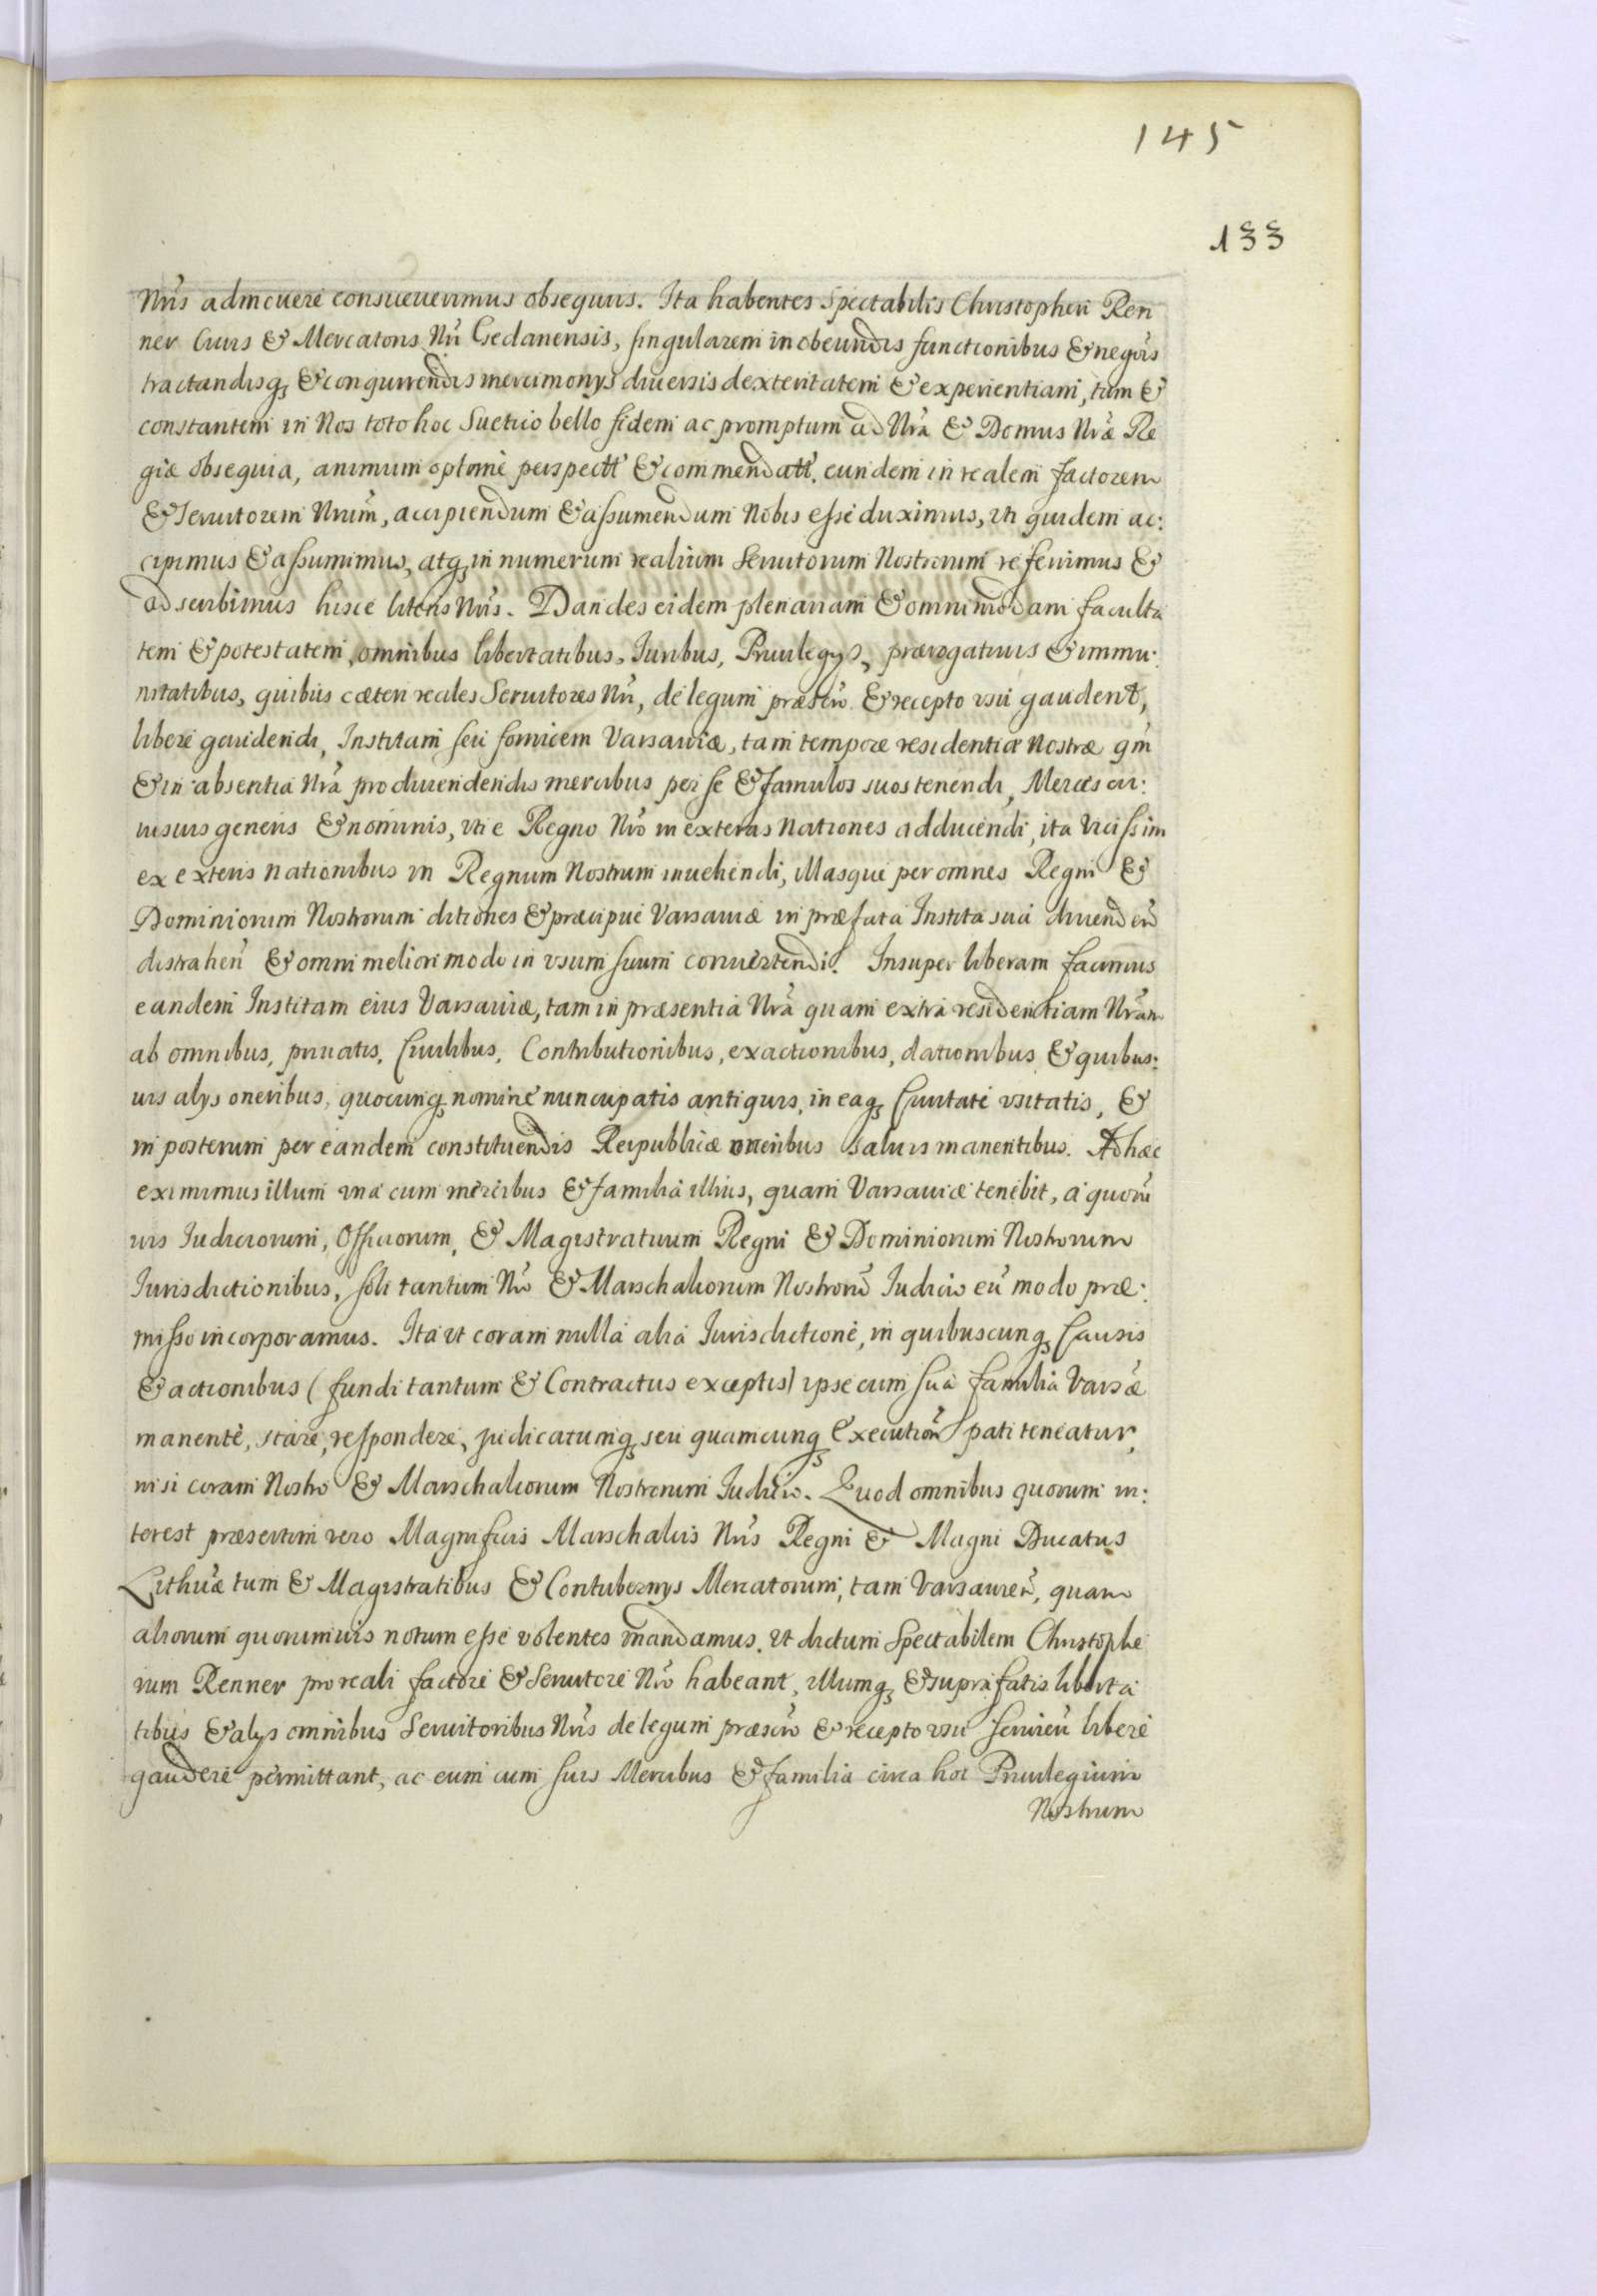 145
133
Nris admouere consueuerimus obsequiis. Ita habentes Spectabilis Christopheri Ren
ner Ciuis & Mercatoris Nri Gedanensis, singularem in obeundis functionibus & negõis
tractandisq, & conquirendis mercimonys diuersis dexteritatem & experientiam, tum &
constantem in Nos toto hoc Suetico bello fidem ac promptum ad Nrã & Domus Nræ Re
giæ obsequia, animum optimè perspectũ & commendatũ, eundem in realem factorem
& Seruitorem Nrum, accipiendum & assumendum Nobis esse duximus, vti quidem ac:
cipimus & assumimus, atq, in numerum realium Seruitorum Nostrorum referimus &
adscribimus hisce literis Nris. Dandes eidem plenariam & omnimodam faculta
tem & potestatem, omnibus libertatibus, Iuribus, Priuilegys, prærogatiuis & immu:
nitatibus, quibus cæteri reales Seruitores Nri, de legum præscro & recepto vsu gaudent,
liberè gaudendi, Institam seu fornicem Varsauiæ, tam tempore residentiæ Nostræ qm
& in absentia Nrã pro diuendendis mercibus per se & famulos suos tenendi, Merces cu:
iusuis generis & nominis, vti e Regno Nro in exteras nationes adducendi, ita vicissim
ex exteris nationibus in Regnum Nostrum inuehendi, illasque per omnes Regni &
Dominiorum Nostrorum ditiones & præcipuè Varsauiæ in præfata Instita sua diuenden
distrahen & omni meliori modo in vsum suum conuertendi. Insuper liberam facimus
eandem Institam eius Varsauiæ, tam in præsentia Nrã quam extra residentiam Nram
ab omnibus, priuatis, Ciuilibus, Contributionibus, exactionibus, dationibus & quibus:
uis alys oneribus, quocunq, nomine nuncupatis antiquis, in eaq, Ciuitate vsitatis, &
in posterum per eandem constituendis Reipublicæ oneribus saluis manentibus. Ad hæc
eximimus illum vna cum mercibus & familia illius, quam Varsauiæ tenebit, a quorũ
uis Iudiciorum, Officiorum, & Magistratuum Regni & Dominiorum Nostrorum
Iurisdictionibus, soli tantum Nro & Marschalcorum Nostrorũ Iudicio eũ modo præ:
misso incorporamus. Ita vt coram nulla alia Iurisdictione, in quibuscunq, Causis
& actionibus (fundi tantum & Contractus exceptis) ipse cum sua familia Varsæ
manente, stare, respondere, judicatumq, seu quamcunq, Execution pati teneatur,
nisi coram Nostro & Marschalcorum Nostrorum Iudicio. Quod omnibus quorum in:
terest præsertim vero Magnificis Marschalcis Nris Regni & Magni Ducatus
Lithuæ tum & Magistratibus & Contubernys Mercatorum, tam Varsauien, quam
aliorum quorumuis notum esse volentes mandamus, vt dictum Spectabilem Christophe
rum Renner pro reali factore & Seruitore Nro habeant, illumq, & suprafatis liberta
tibus & alys omnibus Seruitoribus Nris de legum præscro & recepto vsu seruien libere
gaudere permittant, ac eum cum suis Mercibus & familia circa hoc Priuilegium
Nostrum